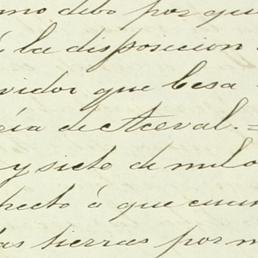 como debo por qu
á la disposicion
vidor que besa
ría de Aceval.=
y siete de mil o
pecto á que cuan
las tierras por m